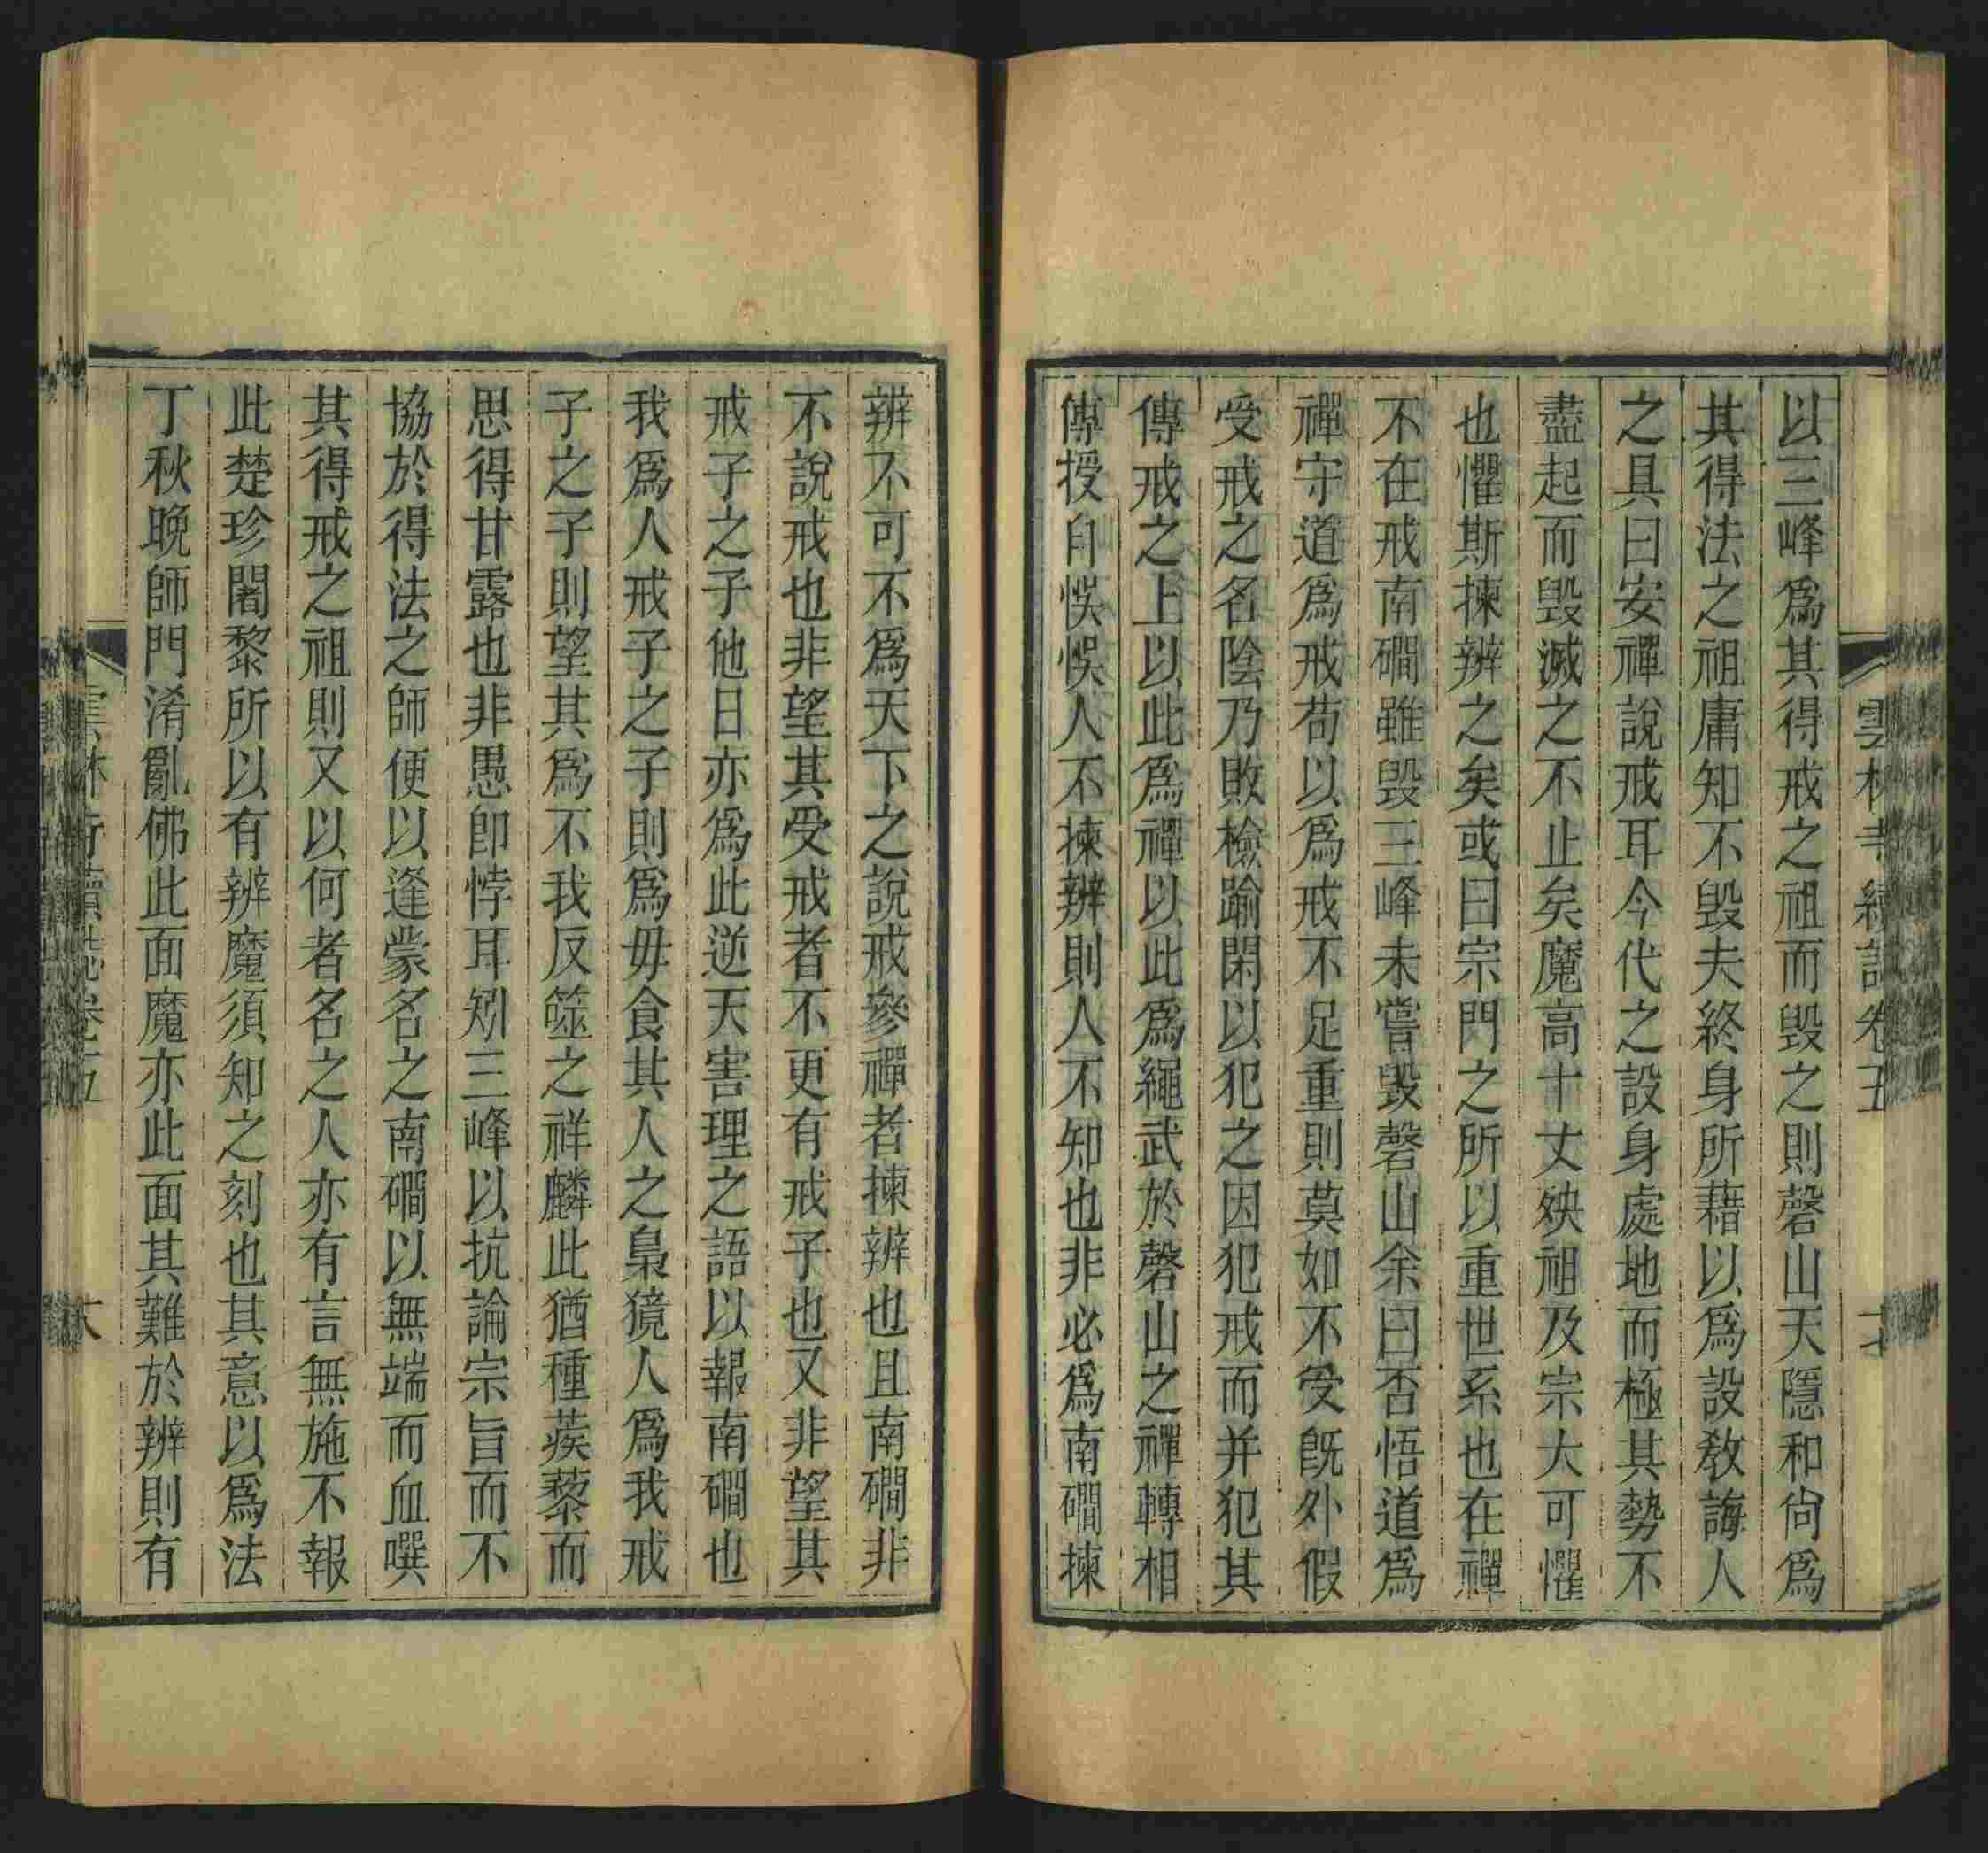 以三峰爲其得戒之祖而毁之則磬山天隱和尙爲
其得法之祖庸知不毁夫終身所藉以爲設敎誨人
之具曰安禪說戒耳今代之設身處地而極其勢不
盡起而毁滅之不止矣魔高十丈殃祖及宗大可懼
也懼斯揀辨之矣或曰宗門之所以重世系也在禪
不在戒南磵雖毁三峰未嘗毁磬山余曰否悟道爲
禪守道爲戒苟以爲戒不足重則莫如不受旣外假
受戒之名陰乃敗檢踰閑以犯之因犯戒而并犯其
傳戒之上以此爲禪以此爲繩武於磬山之禪轉相
傳授自悞悞人不揀辨則人不知也非必爲南磵揀
雲林寺續誌卷五
辨不可不爲天下之說戒參禪者揀辨也且南磵非
不說戒也非望其受戒者不更有戒子也又非望其
戒子之子他日亦爲此逆天害理之語以報南磵也
我爲人戒子之子則爲毋食其人之梟獍人爲我戒
子之子則望其爲不我反噬之祥麟此猶種蒺藜而
思得甘露也非愚卽悖耳矧三峰以抗論宗旨而不
協於得法之師便以逢蒙名之南磵以無端而血噀
其得戒之祖則又以何者名之人亦有言無施不報
此楚珍闍黎所以有辨魔須知之刻也其意以爲法
丁秋晩師門淆亂佛此面魔亦此面其難於辨則有
雲林寺續誌卷五